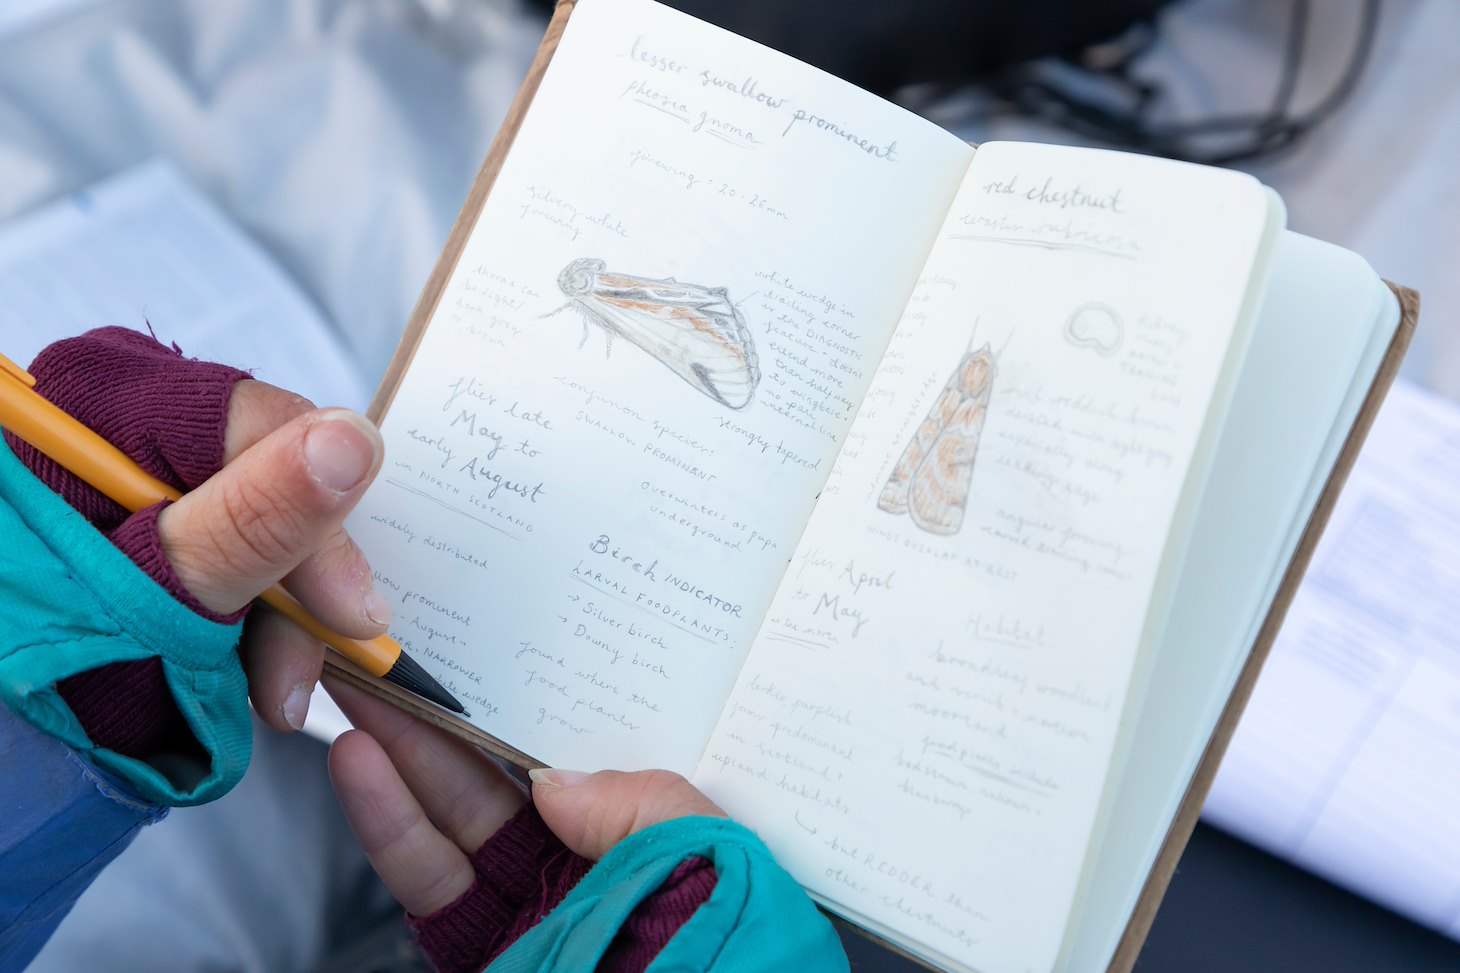 lesser swallow prominent
pheosia gnoma
forewing: 20-26mm
silvery white
forewing
thorax can
be light/
dark grey
or
brown
white wedge in
trailing corner
is the DIAGNOSTIC
feature - doesn't
extend more
than halfway
to wingbase.
no pale
internal line
strongly tapered
confusion species:
SWALLOW PROMINENT
flies late
May to
early August
in NORTH SCOTLAND
overwinters as pupa
underground
widely distributed
Birch INDICATOR
LARVAL FOODPLANTS:
→ Silver birch
→ Downy birch
found where the
food plants
grow
prominent
- August -
NARROWER
white wedge
red chestnut
cerastis rubricosa
KIDNEY
rich reddish brown
especially along
leading edge
angular forewing,
WINGS OVERLAP AT REST
flies April
to May
in the north
Habitat
broadleaf woodland
and scrub + northern
moorland
food plants include
bedstraw, sallows +
blueberry
darker purplish
forms predominant
in scotland +
upland habitats
↳ but REDDER than
other chestnuts